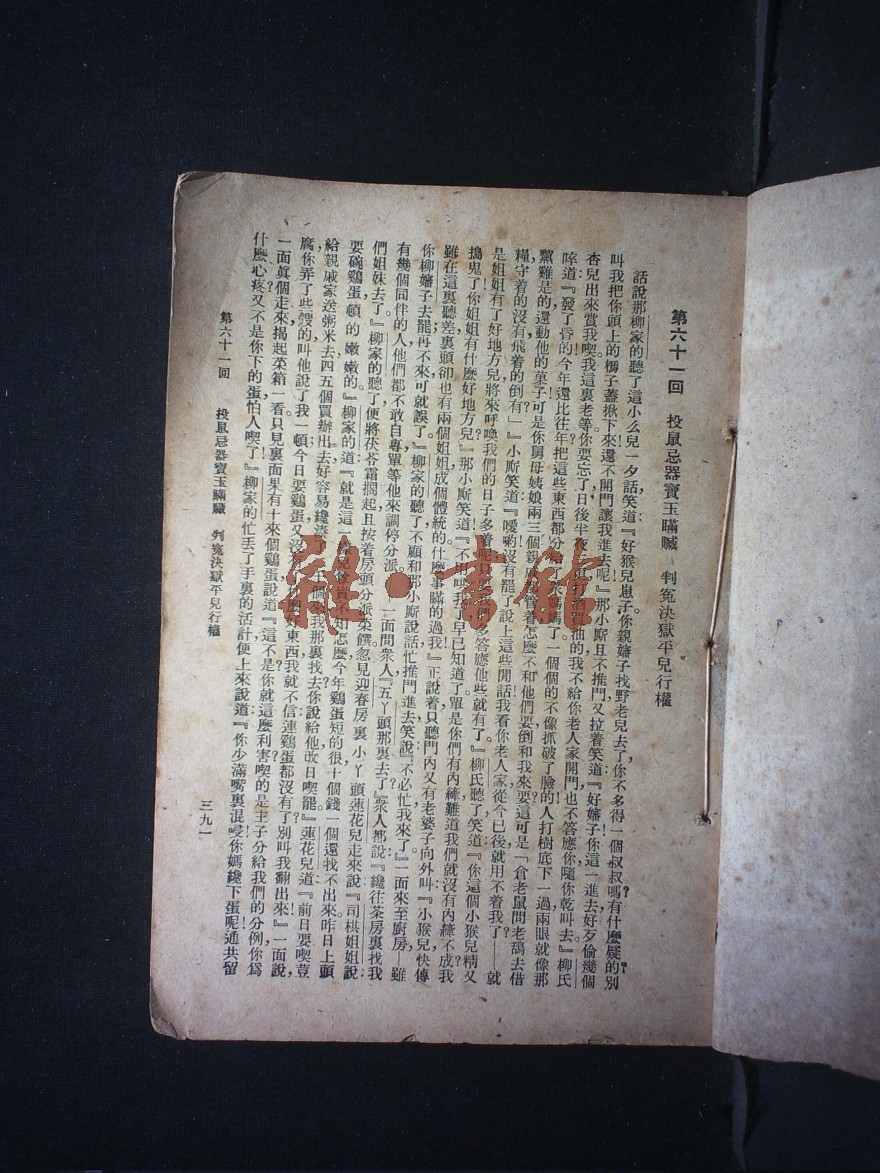 第六十一回　投鼠忌器寶玉瞞贓　判冤決獄平兒行權
話說那柳家的聽了這小么兒一夕話，笑道：『好猴兒崽子！你親嬸子找野老兒去了，你不多得一個叔叔嗎？有什麼疑的？別
叫我把你頭上的榪子蓋揪下來！還不開門讓我進去呢！』那小廝且不推門，又拉着笑道：『好嬸子，你這一進去，好歹偷幾個
杏兒出來賞我喫。我這裏老等。你要忘了，日後半夜三更，打酒買油的，我不給你老人家開門，也不答應你，隨你乾叫去。』柳氏
啐道：『發了昏的！今年還比往年？把這些東西都分給了眾媽媽了。一個個的不像抓破了臉的？人打樹底下一過，兩眼就像那
黧雞是的，還動他的菓子！可是你舅母姨娘兩三個親戚都管着，怎麼不和他們要，倒和我來要？這可是「倉老鼠問老鴰去借
糧，守着的沒有，飛着的倒有」。』小廝笑道：『噯喲！沒有罷了，說上這些閒話！我看你老人家從今已後就用不着我了？——就
是姐姐有了好地方兒，將來呼喚我們的日子多着呢，只要我們多答應他些就有了。』柳氏聽了，笑道：『你這個小猴兒精又
搗鬼了！你姐姐有什麼好地方兒？』那小廝笑道：『不用哄我了，早已知道了。單是你們有內縴，難道我們就沒有內縴不成？我
雖在這裏聽差，裏頭卻也有兩個姐姐，成個體統的，什麼事瞞的過我？』正說着，只聽門內又有老婆子向外叫：『小猴兒，快傳
你柳嬸子去罷，再不來，可就誤了。』柳家的聽了，不顧和那小廝說話，忙推門進去，笑說：『不必忙，我來了。』一面來至廚房，——雖
有幾個同伴的人，他們都不敢自專，單等他來調停分派。——一面問衆人：『五丫頭那裏去了？』衆人都說：『纔往茶房裏找我
們姐妹去了。』柳家的聽了，便將茯苓霜擱起，且按着房頭分派菜饌。忽見迎春房裏小丫頭蓮花兒走來說：『司棋姐姐說：
要碗鷄蛋，頓的嫩嫩的。』柳家的道：『就是這一樣兒尊貴。不知怎麼，今年鷄蛋短的很，十個錢一個還找不出來。昨日上頭
給親戚家送粥米去，四五個買辦出去，好容易纔湊了二千個來，我那裏找去？你說給他，改日喫罷。』蓮花兒道：『前日要喫荳
腐，你弄了些餿的，叫他說了我一頓。今日要鷄蛋又沒有了！什麼好東西？我就不信連鷄蛋都沒有了？別叫我翻出來！』一面說，
一面眞個走來，揭起菜箱一看，只見裏面果有十來個鷄蛋，說道：『這不是？你就這麼利害！喫的是主子分給我們的分例，你爲
什麼心疼？又不是你下的蛋，怕人喫了？』柳家的忙丟了手裏的活計，便上來說道：『你少滿嘴裏混唚！你媽纔下蛋呢！通共留
第六十一回　投鼠忌器寶玉瞞贓　判冤決獄平兒行權
三九一